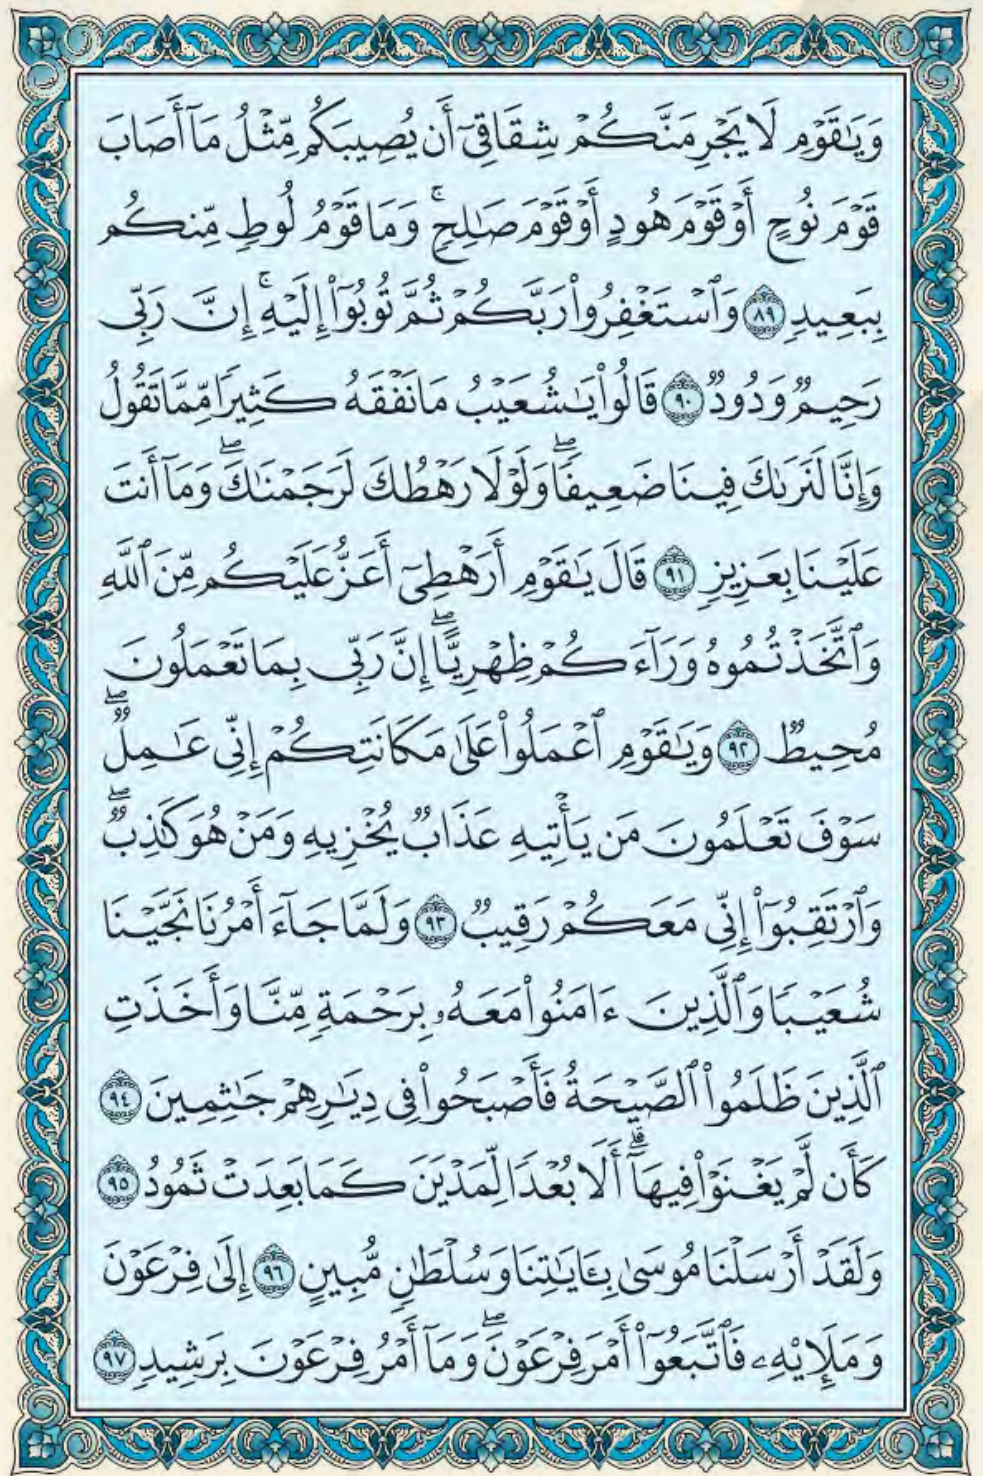 وَيَٰقَوْمِ لَا يَجْرِمَنَّكُمْ شِقَاقِىٓ أَن يُصِيبَكُم مِّثْلُ مَآ أَصَابَ
قَوْمَ نُوحٍ أَوْ قَوْمَ هُودٍ أَوْ قَوْمَ صَٰلِحٍ ۚ وَمَا قَوْمُ لُوطٍ مِّنكُم
بِبَعِيدٍ ٨٩ وَٱسْتَغْفِرُوا۟ رَبَّكُمْ ثُمَّ تُوبُوٓا۟ إِلَيْهِ ۚ إِنَّ رَبِّى
رَحِيمٌ وَدُودٌ ٩٠ قَالُوا۟ يَٰشُعَيْبُ مَا نَفْقَهُ كَثِيرًا مِّمَّا تَقُولُ
وَإِنَّا لَنَرَىٰكَ فِينَا ضَعِيفًا ۖ وَلَوْلَا رَهْطُكَ لَرَجَمْنَٰكَ ۖ وَمَآ أَنتَ
عَلَيْنَا بِعَزِيزٍ ٩١ قَالَ يَٰقَوْمِ أَرَهْطِىٓ أَعَزُّ عَلَيْكُم مِّنَ ٱللَّهِ
وَٱتَّخَذْتُمُوهُ وَرَآءَكُمْ ظِهْرِيًّا ۖ إِنَّ رَبِّى بِمَا تَعْمَلُونَ
مُحِيطٌ ٩٢ وَيَٰقَوْمِ ٱعْمَلُوا۟ عَلَىٰ مَكَانَتِكُمْ إِنِّى عَٰمِلٌ ۖ
سَوْفَ تَعْلَمُونَ مَن يَأْتِيهِ عَذَابٌ يُخْزِيهِ وَمَنْ هُوَ كَٰذِبٌ ۖ
وَٱرْتَقِبُوٓا۟ إِنِّى مَعَكُمْ رَقِيبٌ ٩٣ وَلَمَّا جَآءَ أَمْرُنَا نَجَّيْنَا
شُعَيْبًا وَٱلَّذِينَ ءَامَنُوا۟ مَعَهُۥ بِرَحْمَةٍ مِّنَّا وَأَخَذَتِ
ٱلَّذِينَ ظَلَمُوا۟ ٱلصَّيْحَةُ فَأَصْبَحُوا۟ فِى دِيَٰرِهِمْ جَٰثِمِينَ ٩٤
كَأَن لَّمْ يَغْنَوْا۟ فِيهَآ ۗ أَلَا بُعْدًا لِّمَدْيَنَ كَمَا بَعِدَتْ ثَمُودُ ٩٥
وَلَقَدْ أَرْسَلْنَا مُوسَىٰ بِـَٔايَٰتِنَا وَسُلْطَٰنٍ مُّبِينٍ ٩٦ إِلَىٰ فِرْعَوْنَ
وَمَلَإِي۟هِۦ فَٱتَّبَعُوٓا۟ أَمْرَ فِرْعَوْنَ ۖ وَمَآ أَمْرُ فِرْعَوْنَ بِرَشِيدٍ ٩٧